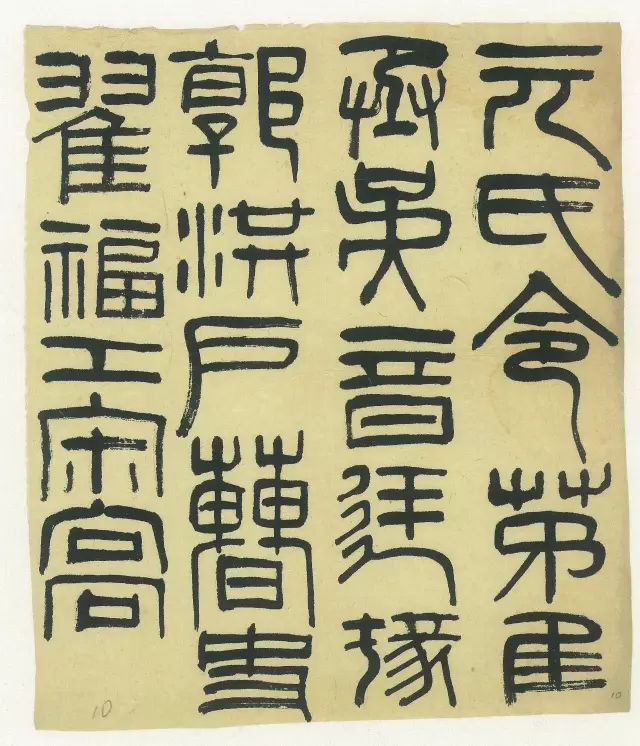 元氏令茅
丞吳音廷掾
郭洪戶曹史
翟福工宋高
10
10